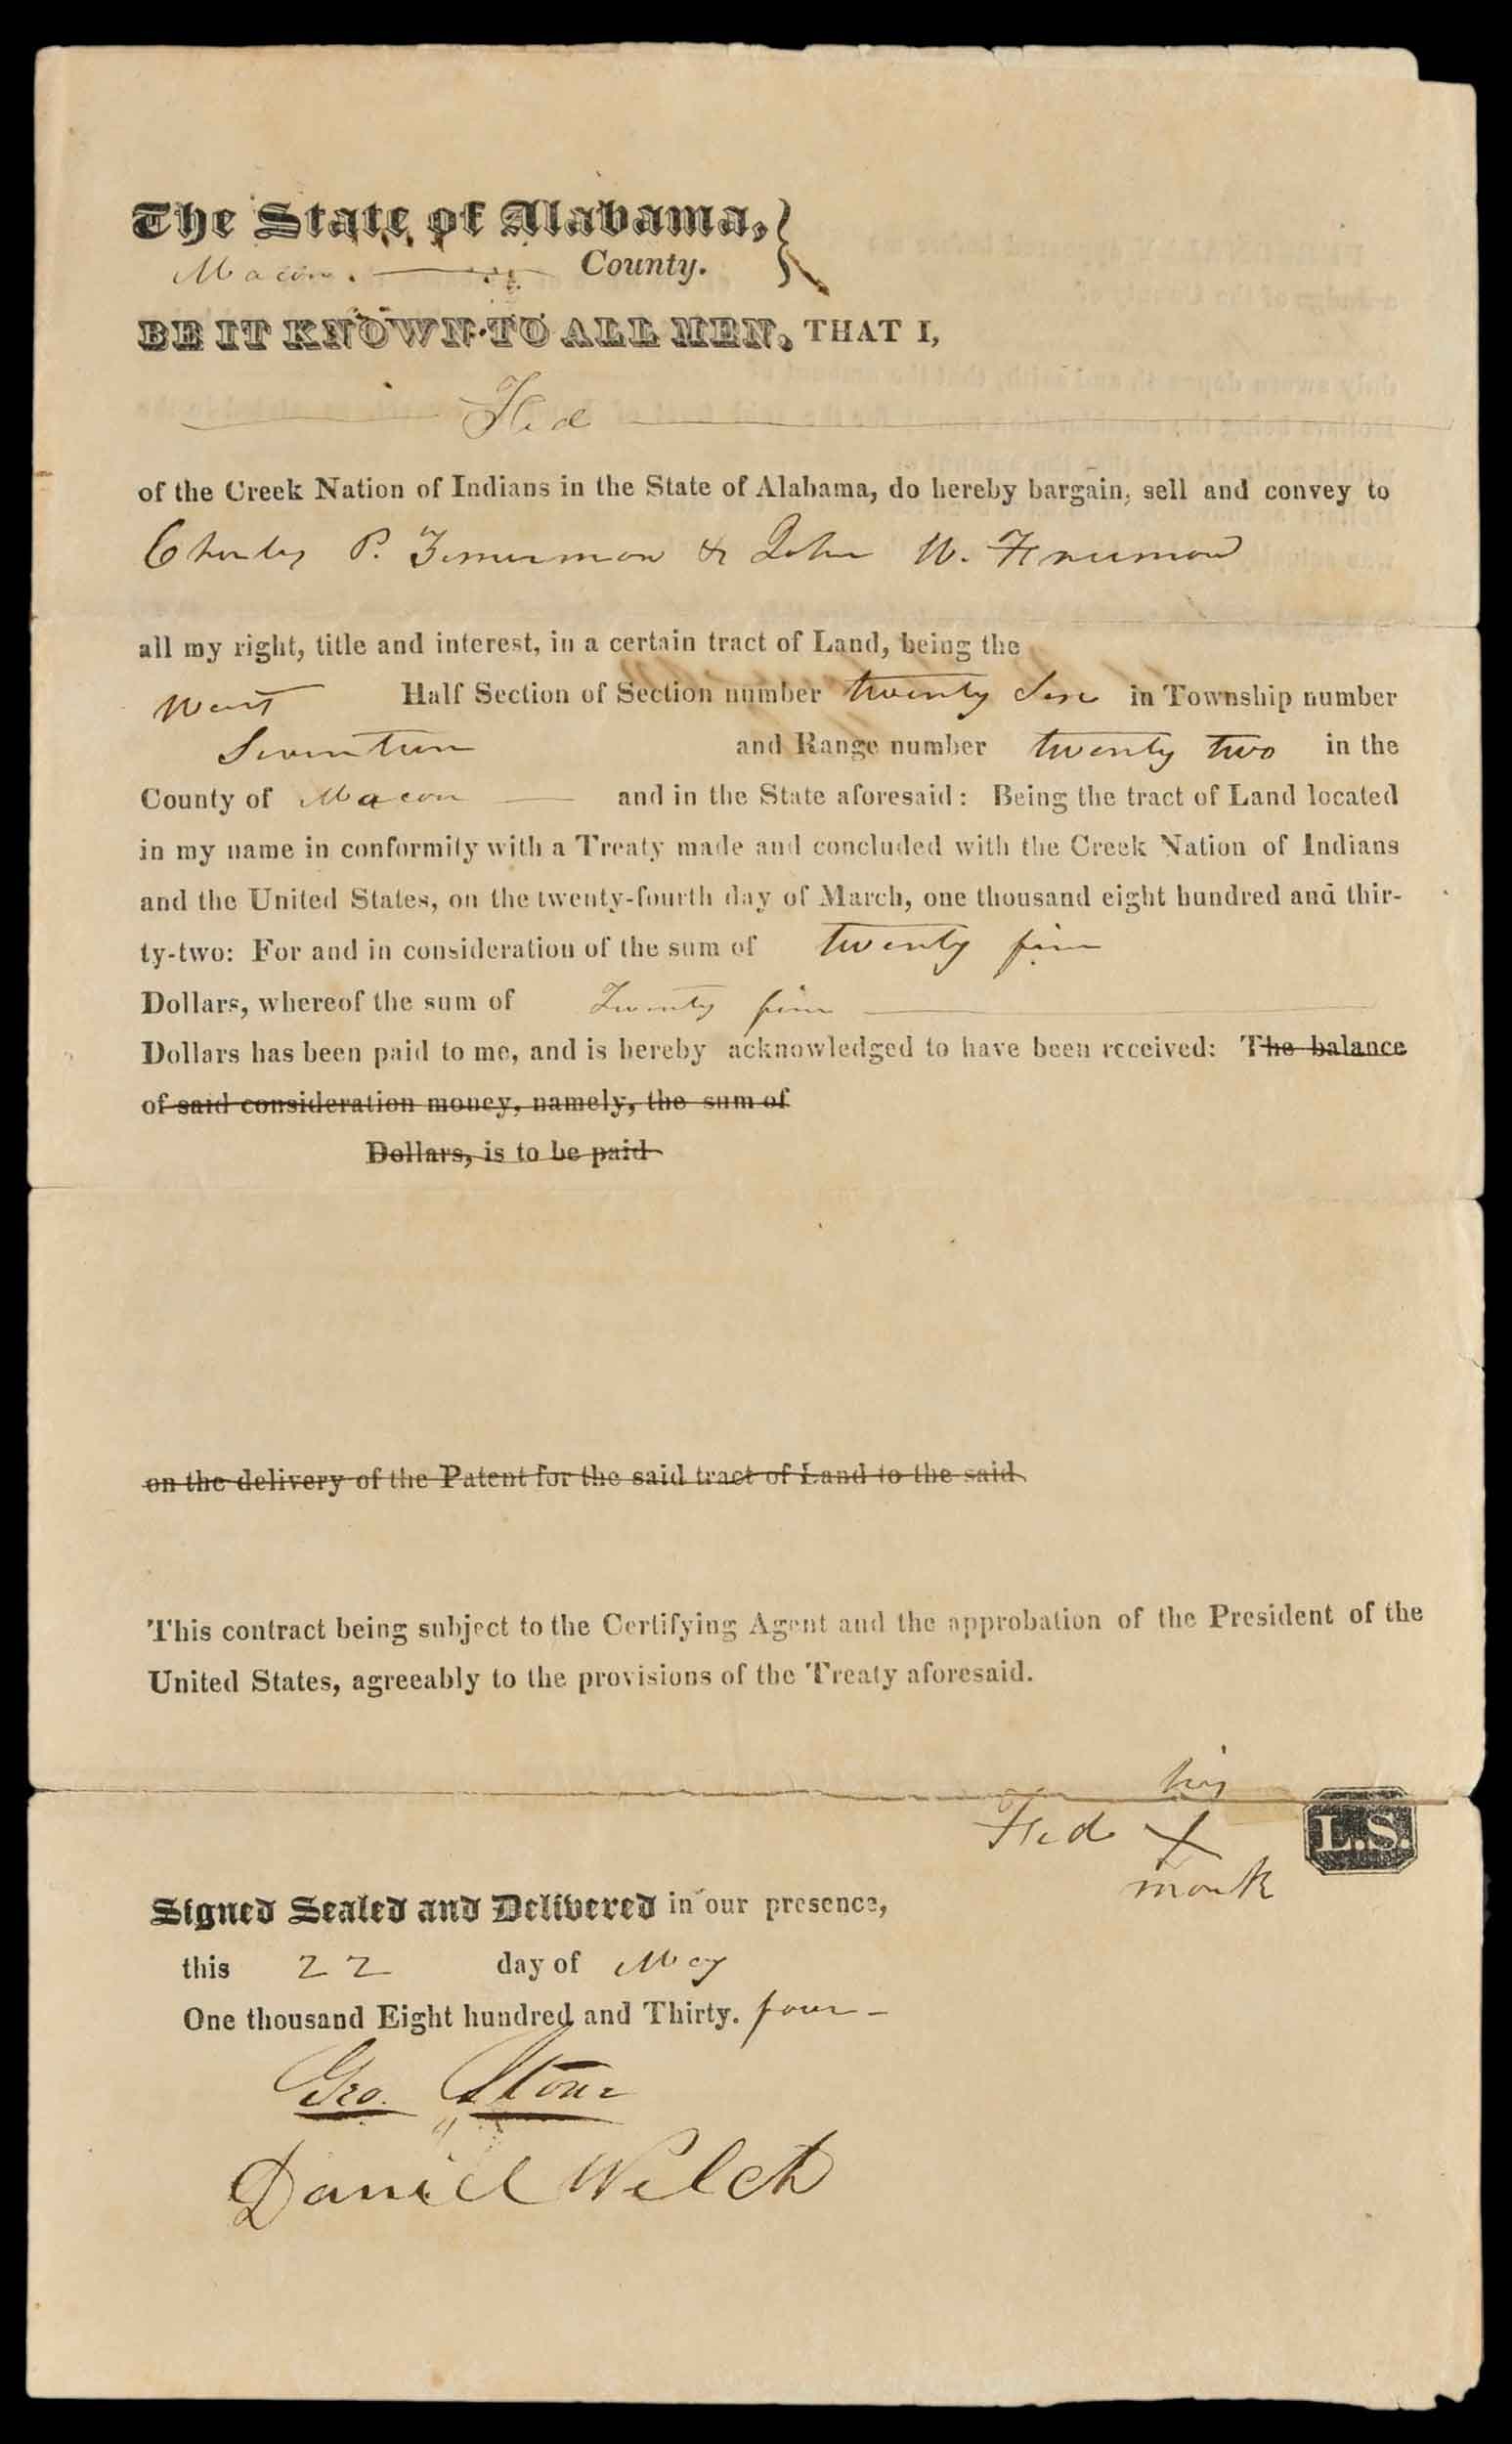 The State of Alabama,
Macon. County.
BE IT KNOWN TO ALL MEN, THAT I,
Fled
of the Creek Nation of Indians in the State of Alabama, do hereby bargain, sell and convey to
P. & John W. Freeman
all my right, title and interest, in a certain tract of Land, being the
West Half Section of Section number twenty in Township number
Seventeen and Range number twenty two in the
County of Macon and in the State aforesaid: Being the tract of Land located
in my name in conformity with a Treaty made and concluded with the Creek Nation of Indians
and the United States, on the twenty-fourth day of March, one thousand eight hundred and thir-
ty-two: For and in consideration of the sum of twenty five
Dollars, whereof the sum of Twenty five
Dollars has been paid to me, and is hereby acknowledged to have been received: The balance
of said consideration money, namely, the sum of
Dollars, is to be paid
on the delivery of the Patent for the said tract of Land to the said
This contract being subject to the Certifying Agent and the approbation of the President of the
United States, agreeably to the provisions of the Treaty aforesaid.
his
Fled X L.S.
mark
Signed Sealed and Delivered in our presence,
this 22 day of May
One thousand Eight hundred and Thirty. four
Geo. Stone
Daniel Welch